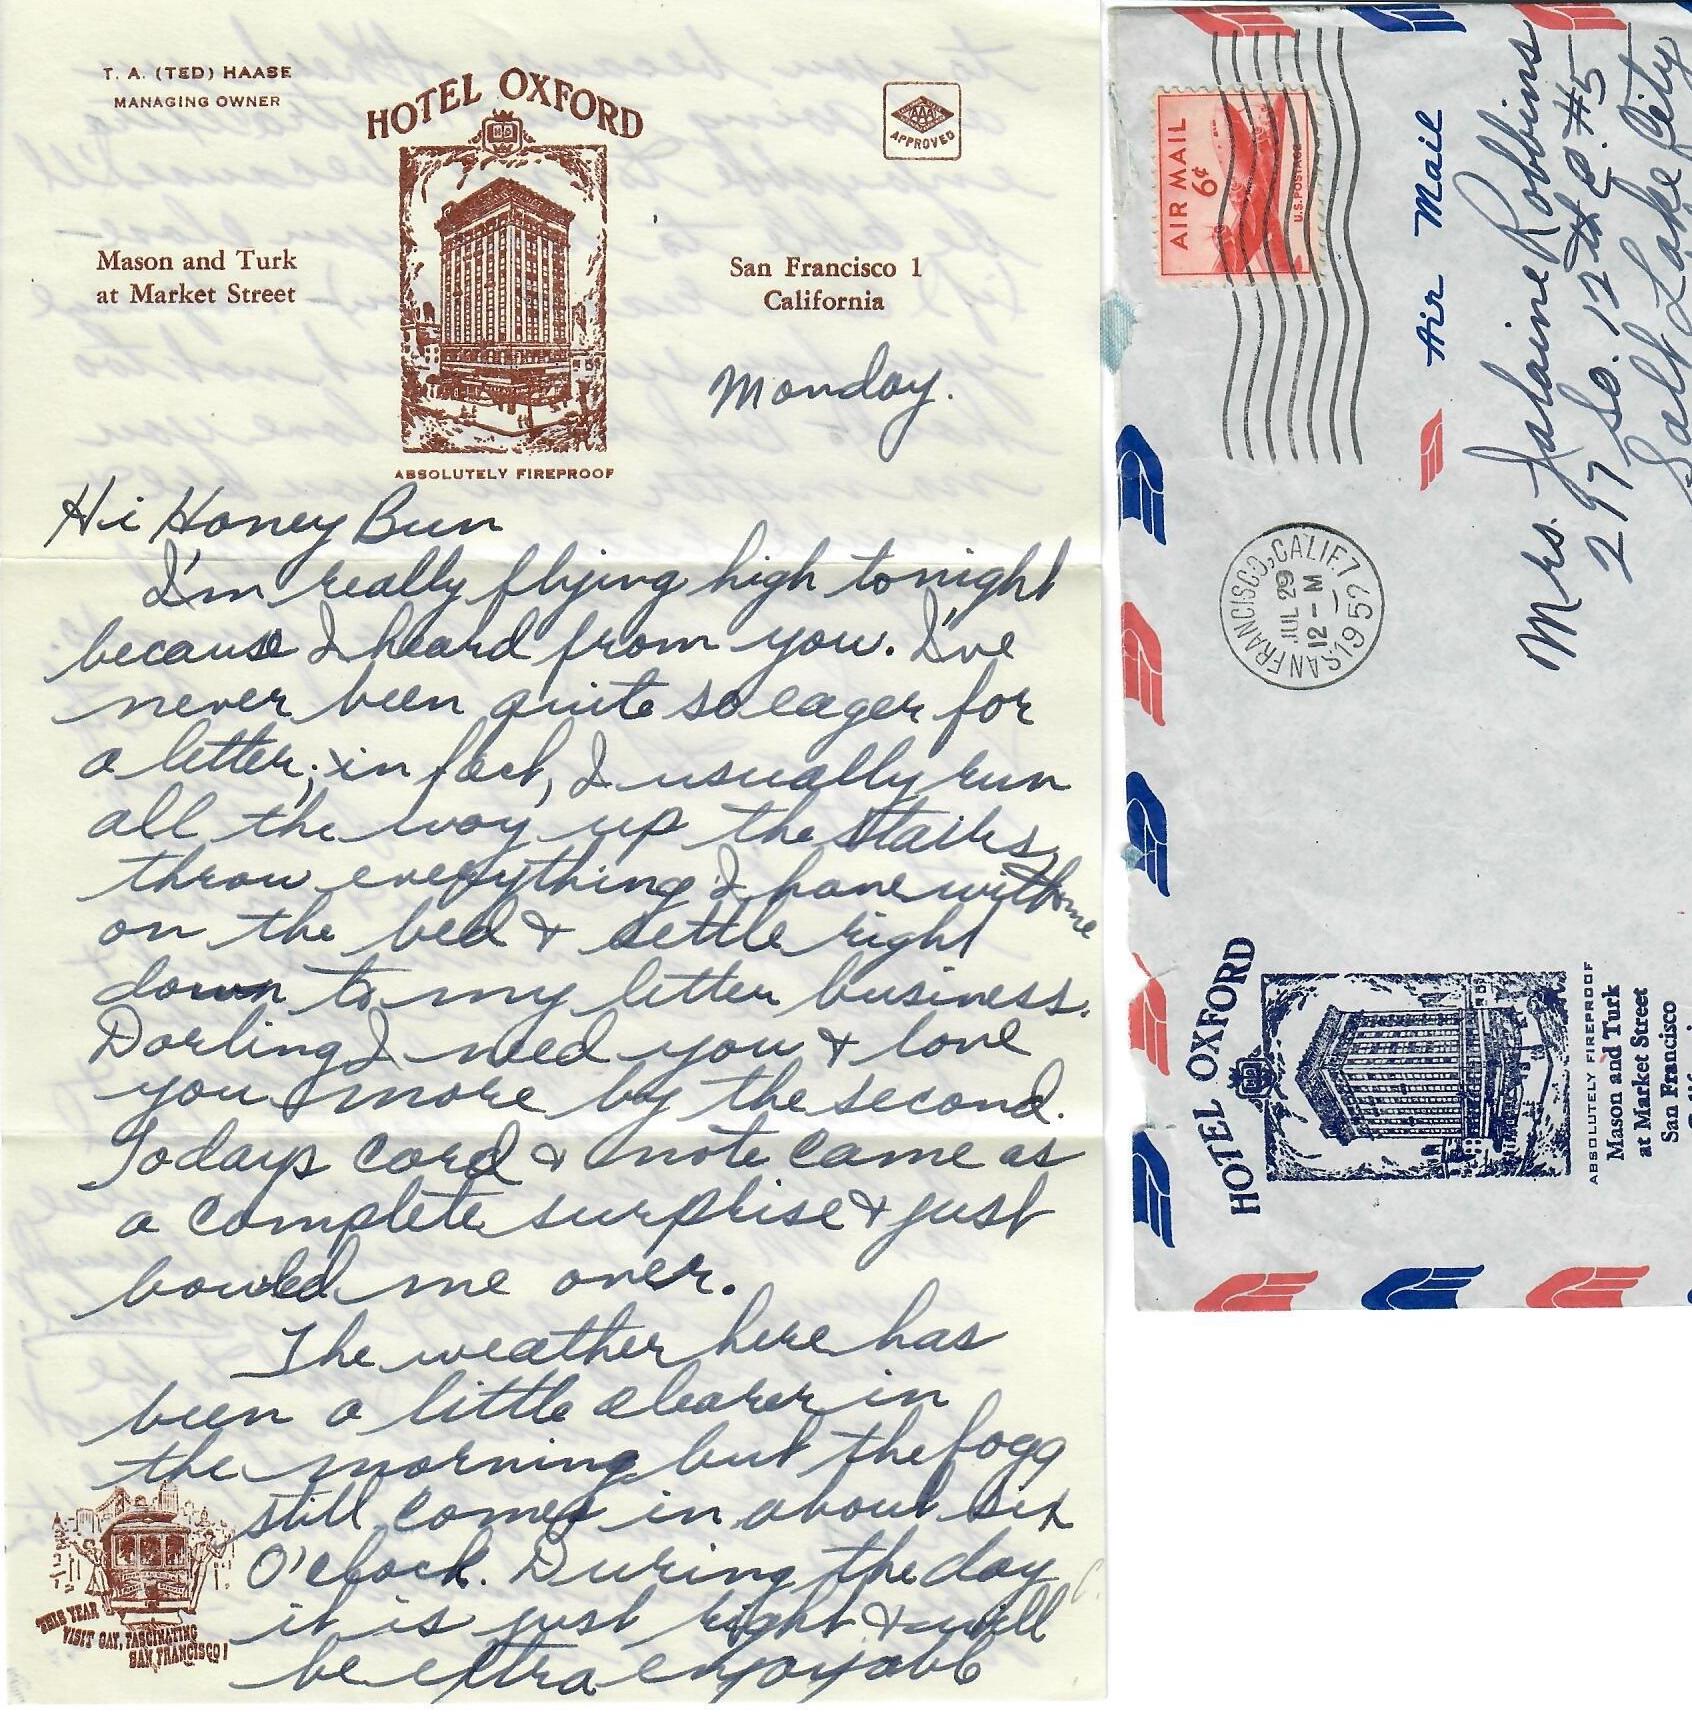 T. A. (TED) HAASE
MANAGING OWNER
HOTEL OXFORD
HO
AAA
APPROVED
Mason and Turk
at Market Street
San Francisco 1
California
ABSOLUTELY FIREPROOF
Monday.
Hi Honey Bun
I'm really flying high tonight
because I heard from you. I've
never been quite so eager for
a letter; in fact, I usually run
all the way up the stairs,
throw everything I have with me
on the bed & settle right
down to my letter business.
Darling I need you & love
you more by the second.
Todays card & note came as
a complete surprise & just
bowled me over.
The weather here has
been a little clearer in
the morning but the fogg
still comes in about six
O'clock. During the day
it is just right & will
be extra enjoyabl
THIS YEAR
VISIT GAY, FASCINATING
SAN FRANCISCO!
AIR MAIL
6¢
U.S. POSTAGE
Air Mail
SAN FRANCISCO, CALIF. 7
JUL 29
12 - M
1957
Mrs. Jalaine Robbins
297 So. 12th E. #5
Salt Lake City
HOTEL OXFORD
HO
ABSOLUTELY FIREPROOF
Mason and Turk
at Market Street
San Francisco